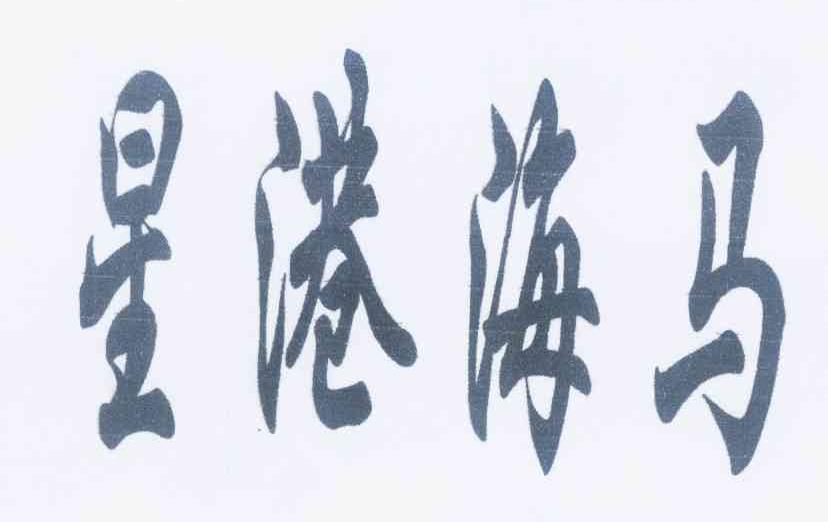 星港海马